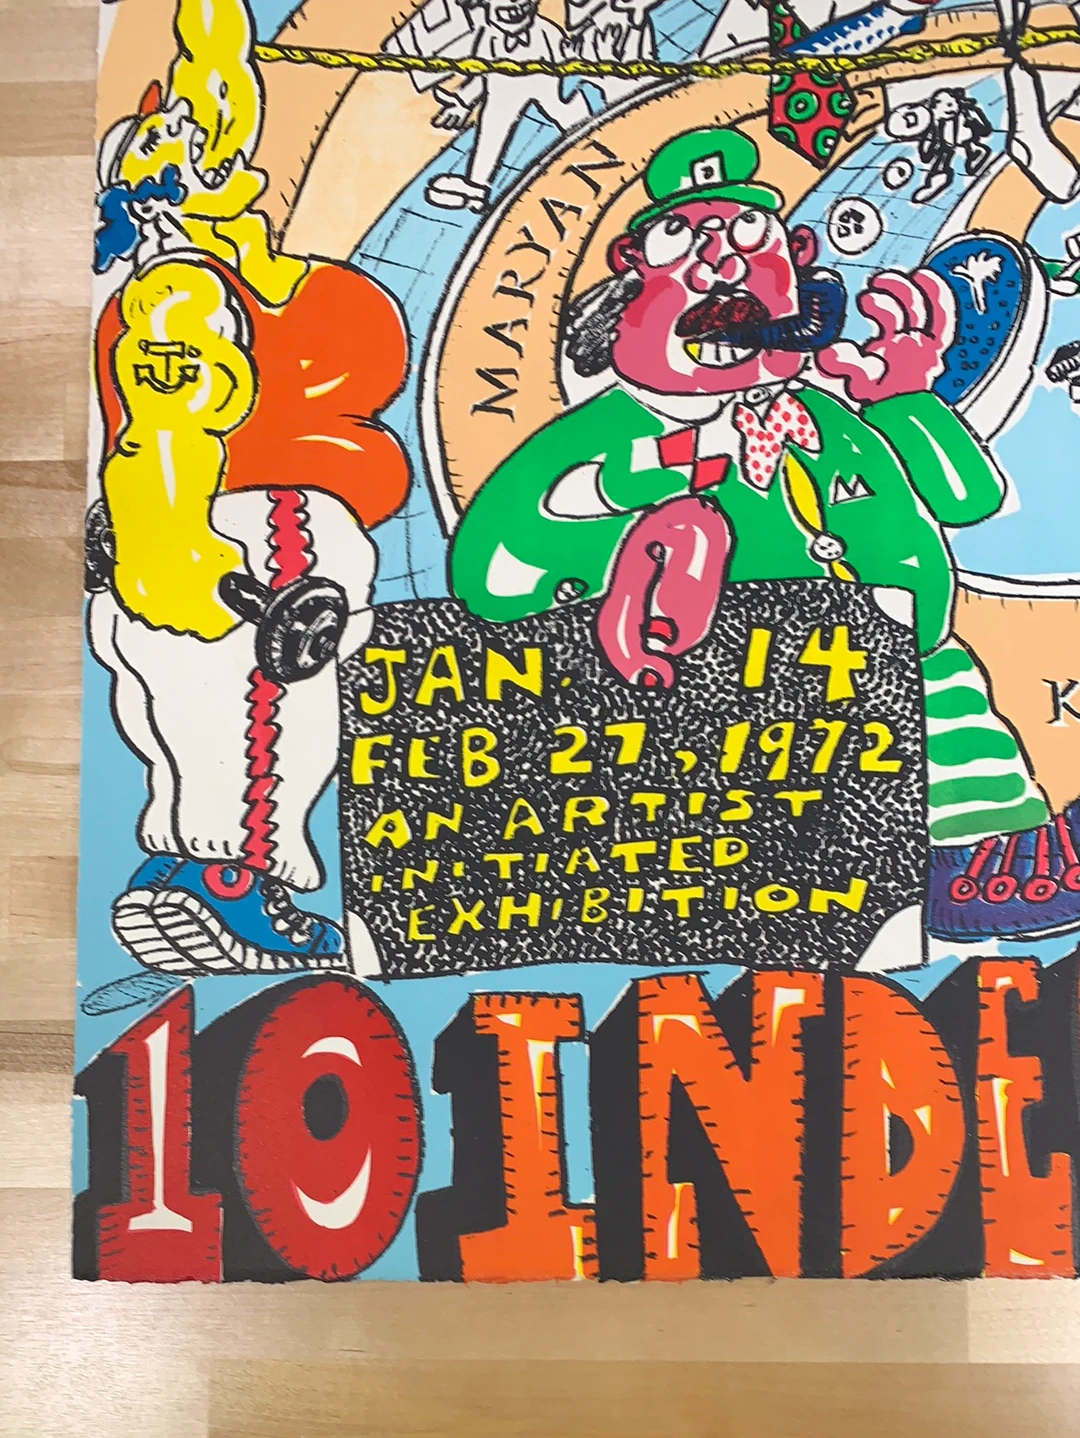 MARYAN
M
K
JAN. 14
FEB 27, 1972
AN ARTIST
INITIATED
EXHIBITION
10 INDE